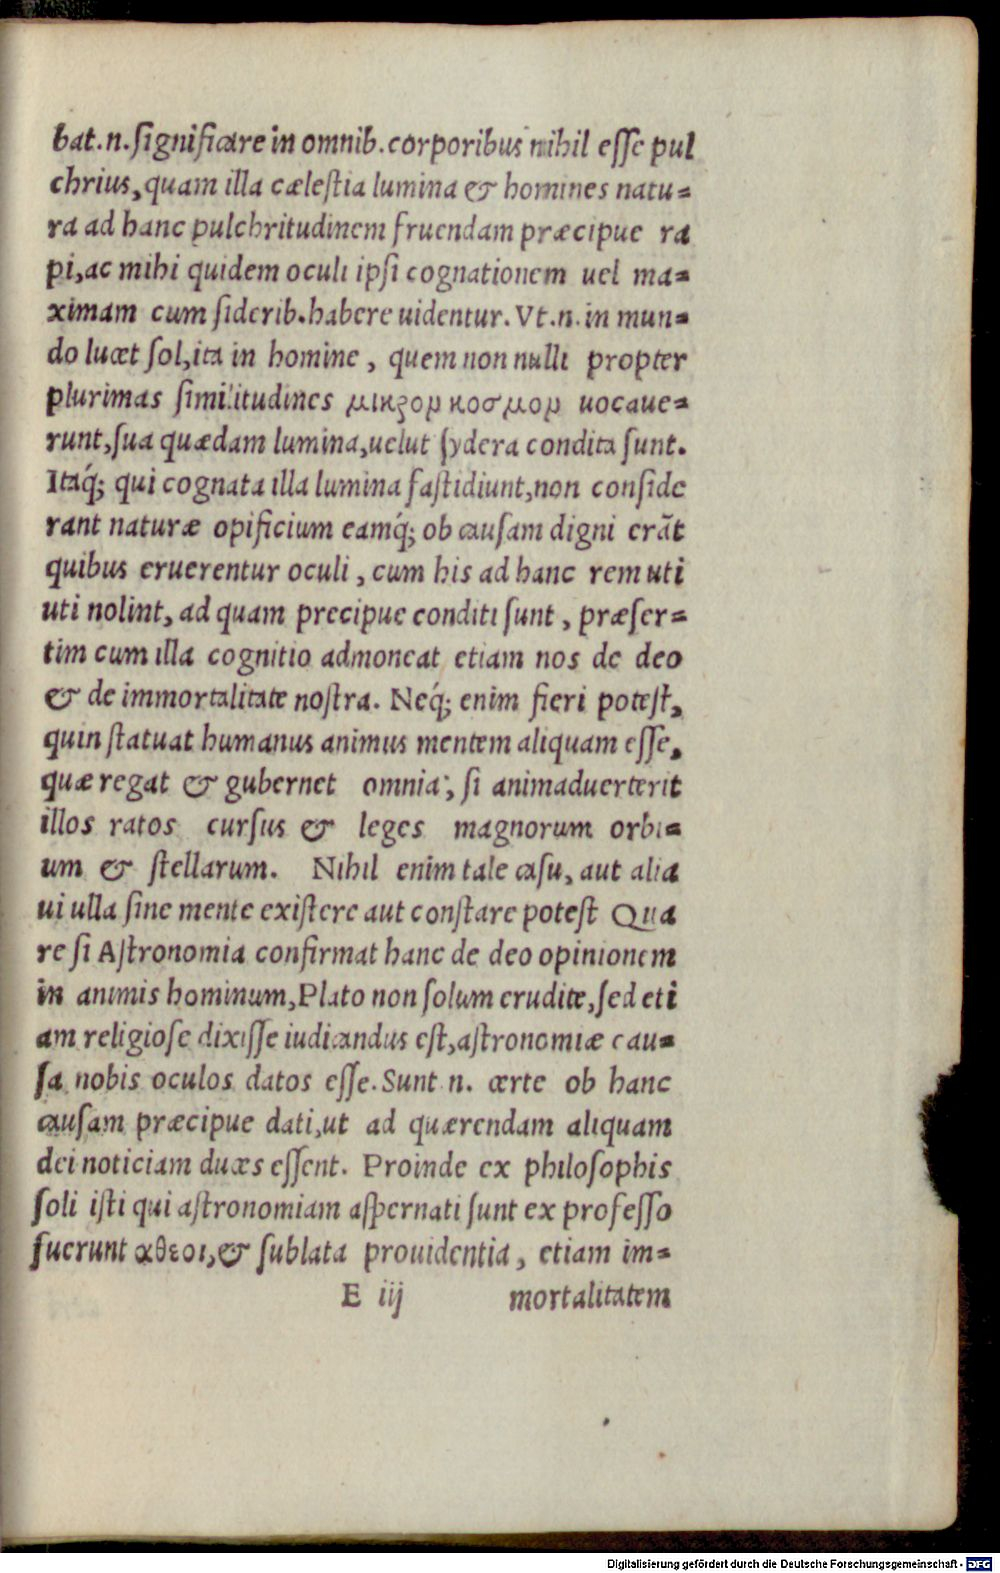 bat.n.ſignificare in omnib.corporibus nihil eſſe pul
chrius,quam illa cæleſtia lumina & homines natu=
ra ad hanc pulchritudinem fruendam præcipue ra
pi,ac mihi quidem oculi ipſi cognationem uel ma=
ximam cum ſiderib.habere uidentur.Vt.n.in mun=
do lucet ſol,ita in homine, quem non nulli propter
plurimas ſimilitudines μικρομ κοσμομ uocaue=
runt,ſua quædam lumina,uelut ſydera condita ſunt.
Itaq́; qui cognata illa lumina faſtidiunt,non conſide
rant naturæ opificium eamq́; ob cauſam digni erāt
quibus eruerentur oculi, cum his ad hanc rem uti
uti nolint, ad quam precipue conditi ſunt, præſer=
tim cum illa cognitio admoneat etiam nos de deo
& de immortalitate noſtra. Neq́; enim fieri poteſt,
quin ſtatuat humanus animus mentem aliquam eſſe,
quæ regat & gubernet omnia, ſi animaduerterit
illos ratos curſus & leges magnorum orbi=
um & ſtellarum. Nihil enim tale caſu, aut alia
ui ulla ſine mente exiſtere aut conſtare poteſt Qua
re ſi Aſtronomia confirmat hanc de deo opinionem
in animis hominum,Plato non ſolum erudite,ſed eti
am religioſe dixiſſe iudicandus eſt,aſtronomiæ cau=
ſa nobis oculos datos eſſe.Sunt n. certe ob hanc
cauſam præcipue dati,ut ad quærendam aliquam
dei noticiam duces eſſent. Proinde ex philoſophis
ſoli iſti qui aſtronomiam aſpernati ſunt ex profeſſo
fuerunt αθεοι,& ſublata prouidentia, etiam im=
E iij mortalitatem
Digitalisierung gefördert durch die Deutsche Forschungsgemeinschaft - DFG